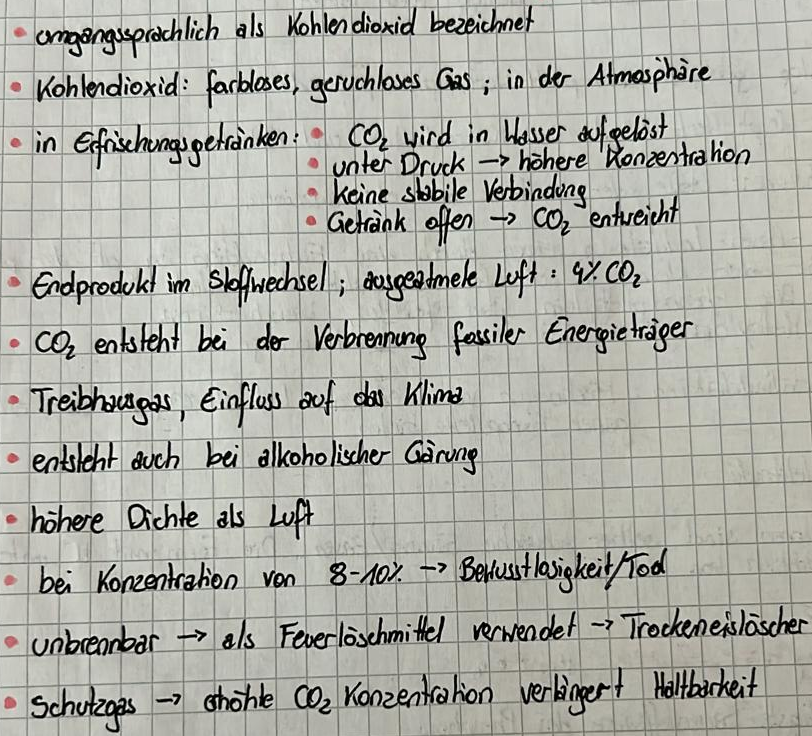 • umgangssprachlich als Kohlendioxid bezeichnet
• Kohlendioxid: farbloses, geruchloses Gas ; in der Atmosphäre
• in Erfrischungsgetränken: • CO₂ wird in Wasser aufgelöst
• unter Druck → höhere Konzentration
• Keine stabile Verbindung
• Getränk offen → CO₂ entweicht
• Endprodukt im Stoffwechsel ; ausgeatmete Luft : 4% CO₂
• CO₂ entsteht bei der Verbrennung fossiler Energieträger
• Treibhausgas, Einfluss auf das Klima
• entsteht auch bei alkoholischer Gärung
• höhere Dichte als Luft
• bei Konzentration von 8-10% → Bewusstlosigkeit/Tod
• unbrennbar → als Feuerlöschmittel verwendet → Trockeneislöscher
• Schutzgas → erhöhte CO₂ Konzentration verlängert Haltbarkeit